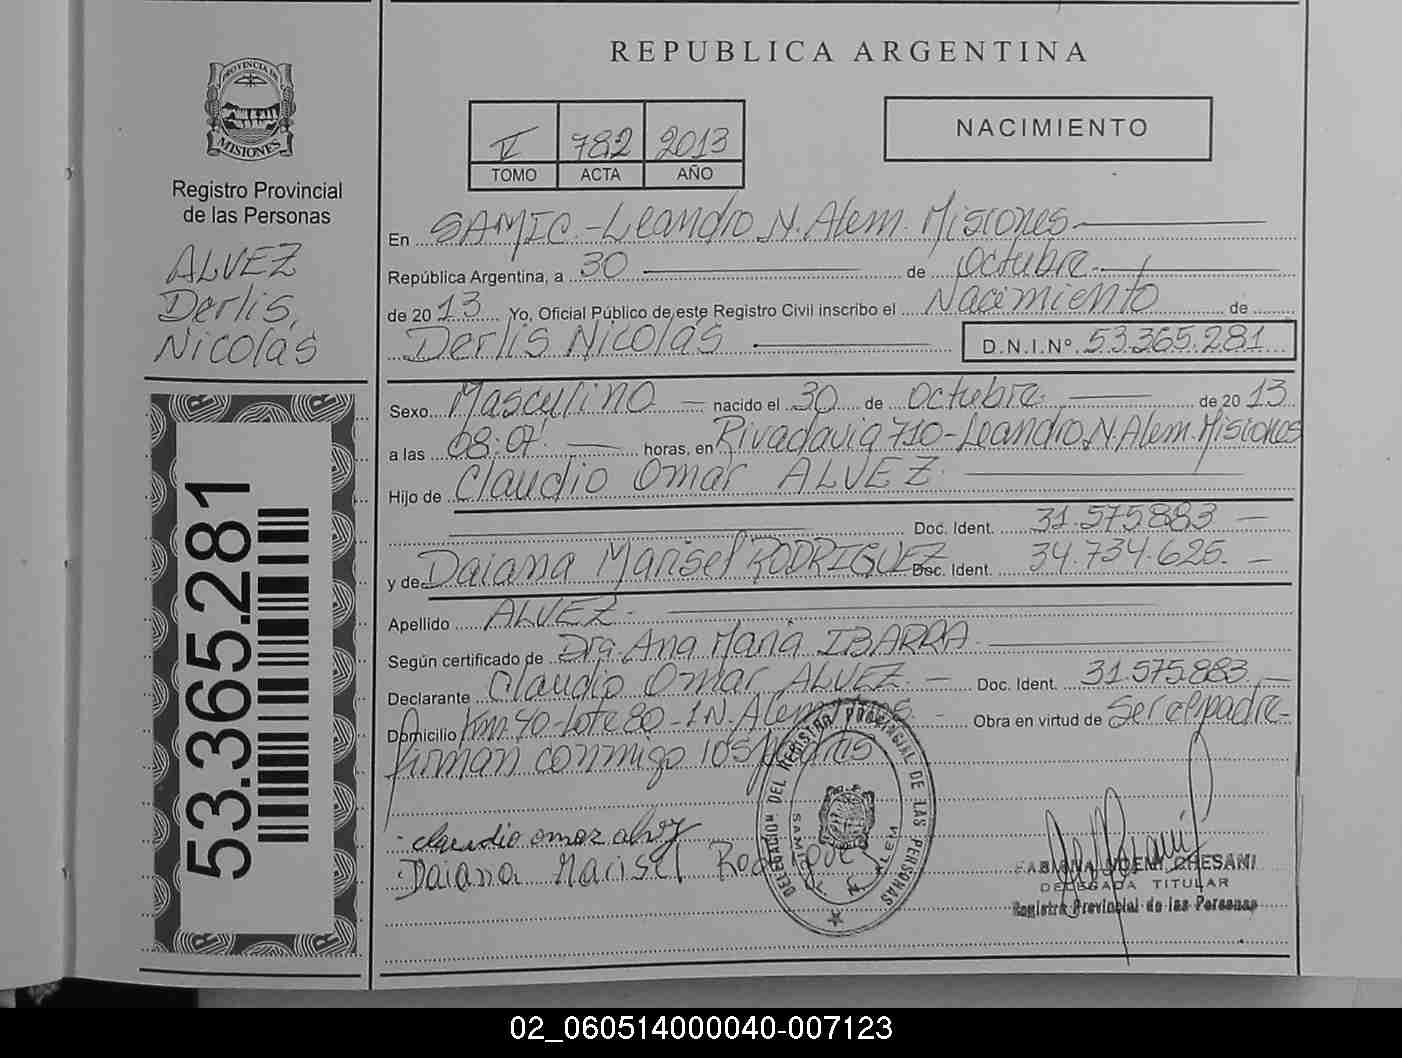 REPUBLICA ARGENTINA
PROVINCIA DE
MISIONES
Registro Provincial
de las Personas
ALVEZ
Derlis,
Nicolás
53.365.281
V 782 2013
TOMO ACTA AÑO
NACIMIENTO
En SAMIC.-Leandro N. Alem. Misiones
República Argentina, a 30 de octubre.
de 2013 Yo, Oficial Público de este Registro Civil inscribo el Nacimiento de
Derlis Nicolás D.N.I.Nº 53.365.281
Sexo Masculino nacido el 30 de octubre. de 2013
a las 08:07. horas, en Rivadavia 710-Leandro N. Alem. Misiones
Hijo de Claudio Omar ALVEZ.
Doc. Ident. 31.575.883
y de Daiana Marisel RODRIGUEZ Doc. Ident. 34.734.625.
Apellido ALVEZ.
Según certificado de Dra. Ana María IBARRA.
Declarante Claudio Omar ALVEZ Doc. Ident. 31.575.883
Domicilio Km 40-Lote 80-LN. Alem Obra en virtud de Ser el padre-
firman conmigo los padres
claudio omar alvez
Daiana Marisel Rodriguez
DELEGACION DEL REGISTRO PROVINCIAL DE LAS PERSONAS
SAMIC L. N. ALEM
FABIANA NOEMI CHESANI
DELEGADA TITULAR
Registro Provincial de las Personas
02_060514000040-007123